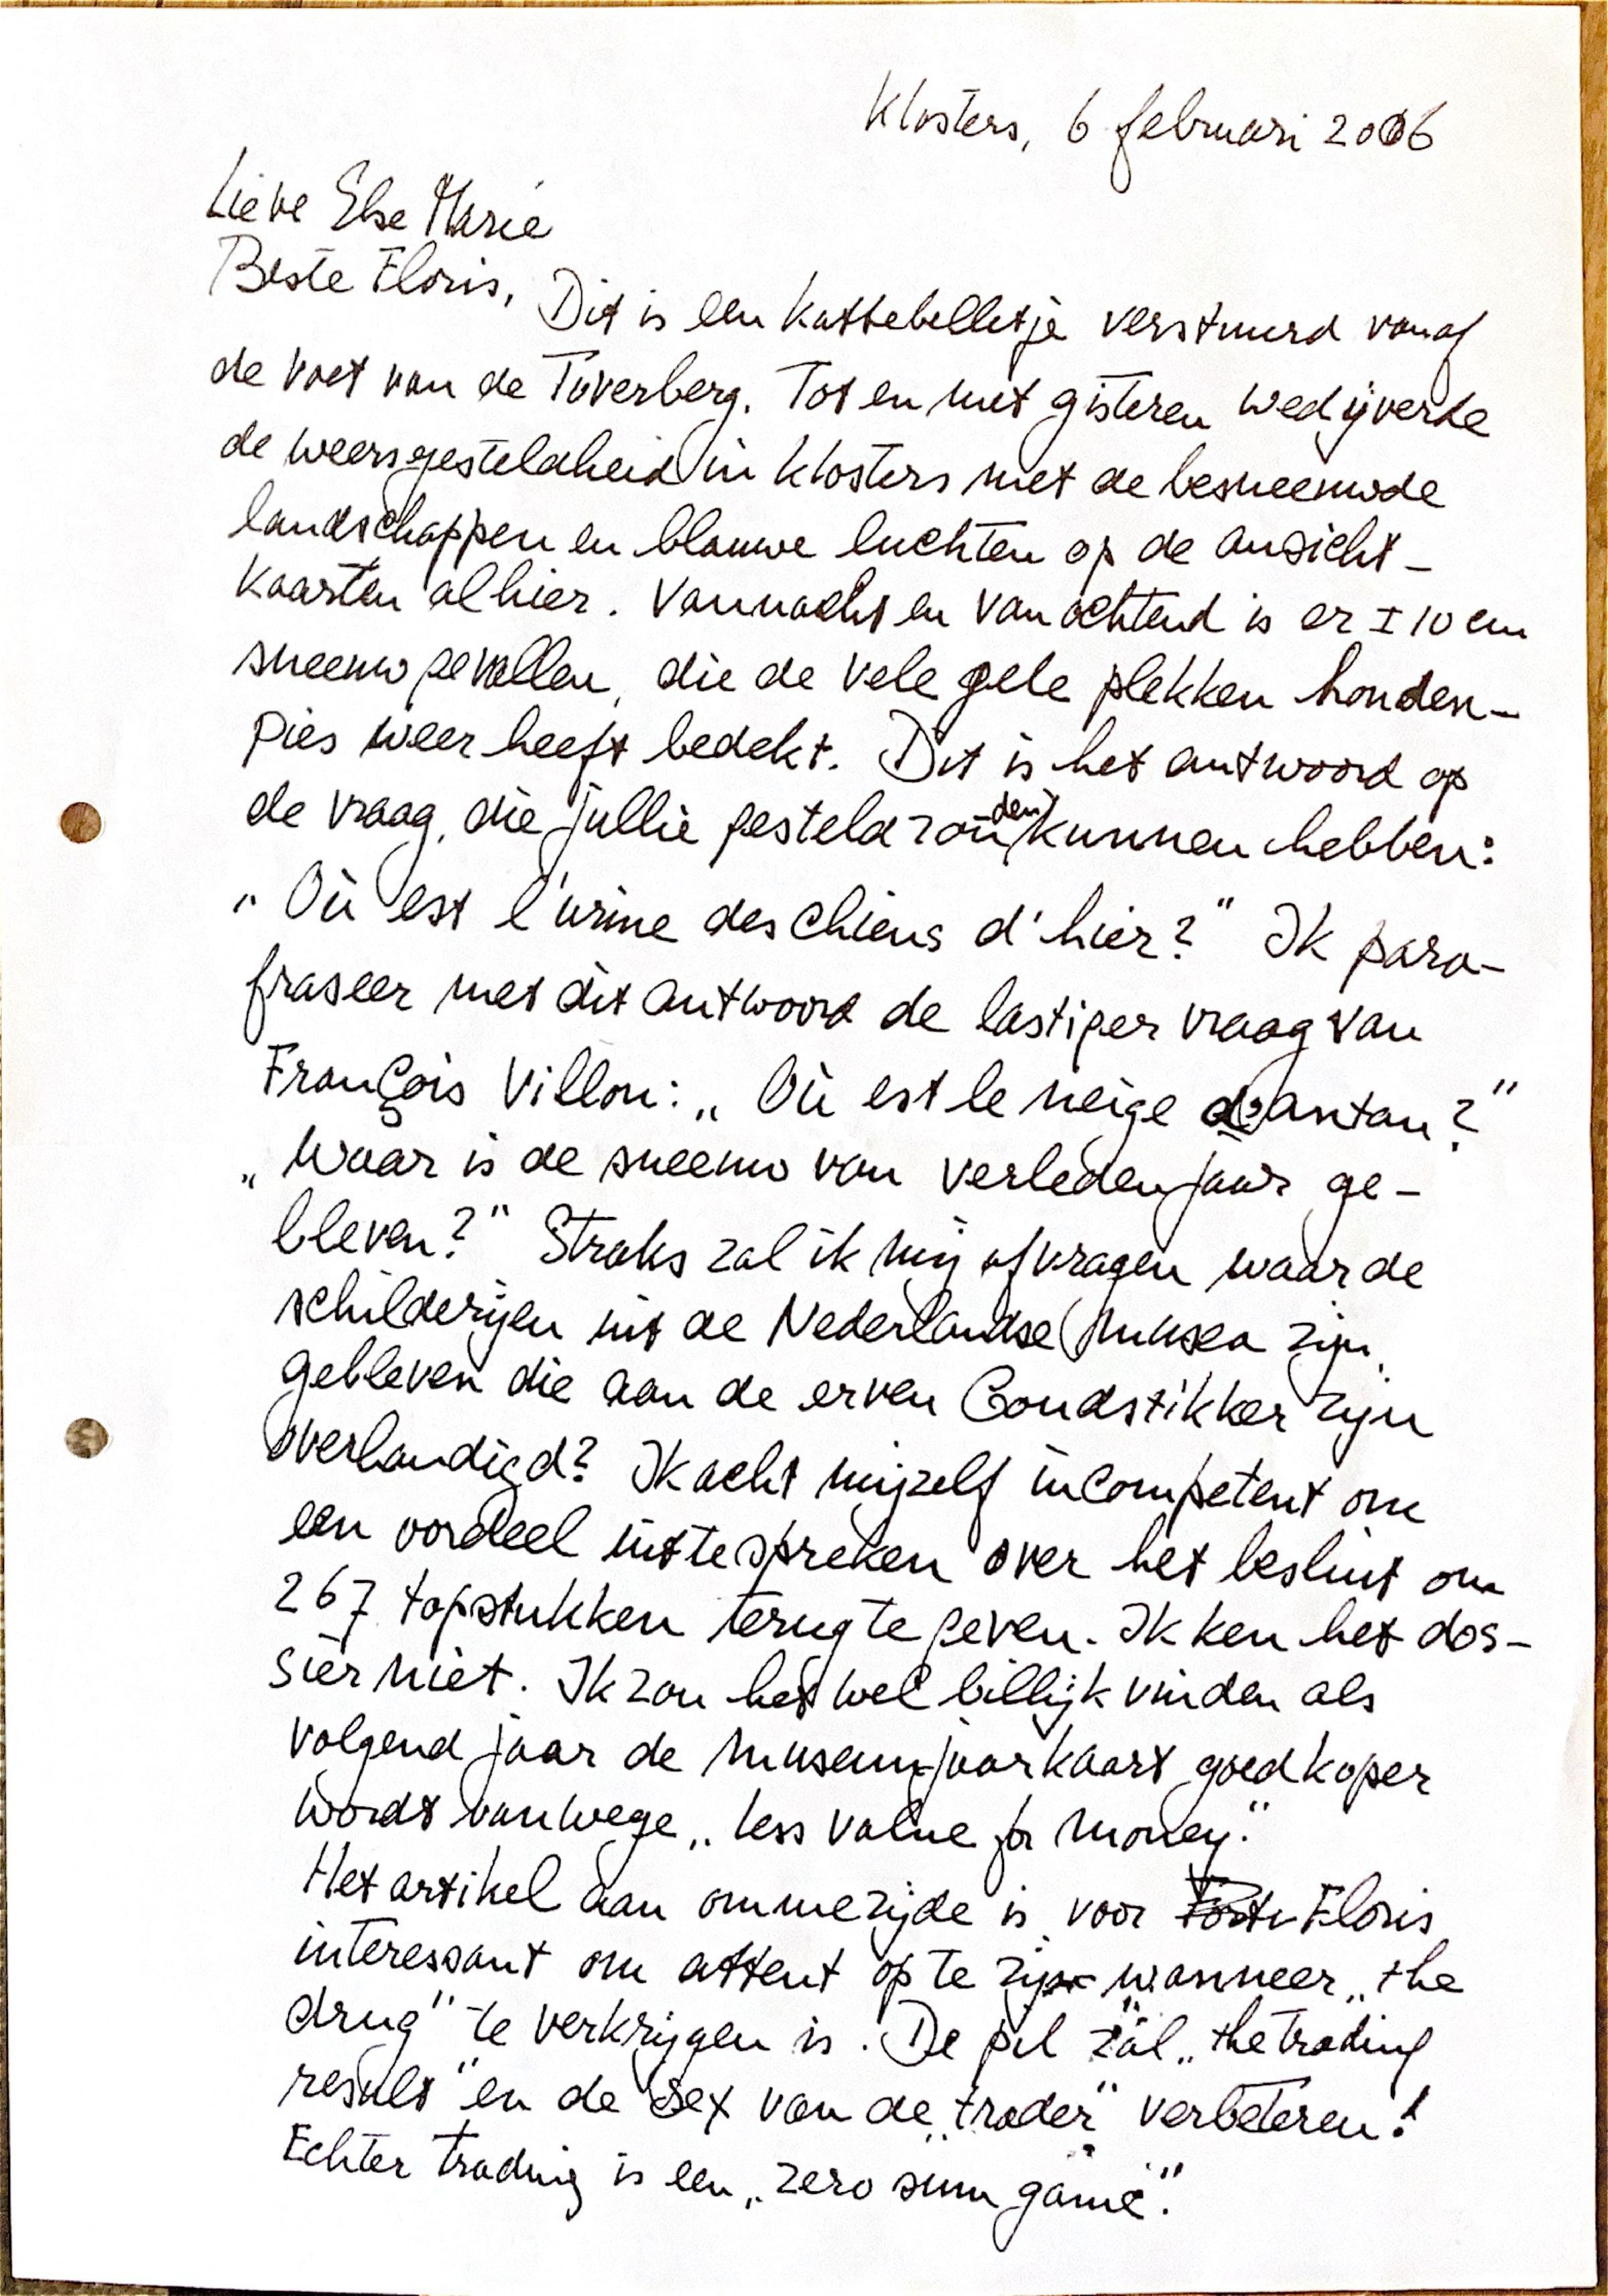 Klosters, 6 februari 2006
Lieve Else Marie
Beste Floris,
Dit is een kattebelletje verstuurd vanaf
de voet van de Toverberg. Tot en met gisteren wedijverde
de weersgesteldheid in Klosters met de besneeuwde
landschappen en blauwe luchten op de ansicht-
kaarten alhier. Vannacht en vanochtend is er ± 10 cm
sneeuw gevallen, die de vele gele plekken honden-
pies weer heeft bedekt. Dit is het antwoord op
de vraag, die jullie gesteld zouden kunnen hebben:
„Où est l'urine des chiens d'hier?" Ik para-
fraseer met dit antwoord de lastiger vraag van
François Villon: „Où est le neige d'antan?"
„Waar is de sneeuw van verleden jaar ge-
bleven?" Straks zal ik mij afvragen waar de
schilderijen uit de Nederlandse musea zijn
gebleven die aan de erven Goudstikker zijn
overhandigd? Ik acht mijzelf incompetent om
een oordeel uit te spreken over het besluit om
267 topstukken terug te geven. Ik ken het dos-
sier niet. Ik zou het wel billijk vinden als
volgend jaar de museumjaarkaart goedkoper
wordt vanwege „less value for money."
Het artikel aan ommezijde is voor Floris
interessant om attent op te zijn wanneer „the
drug" te verkrijgen is. De pil zal „the trading
result" en de sex van de „trader" verbeteren!
Echter trading is een „zero sum game".